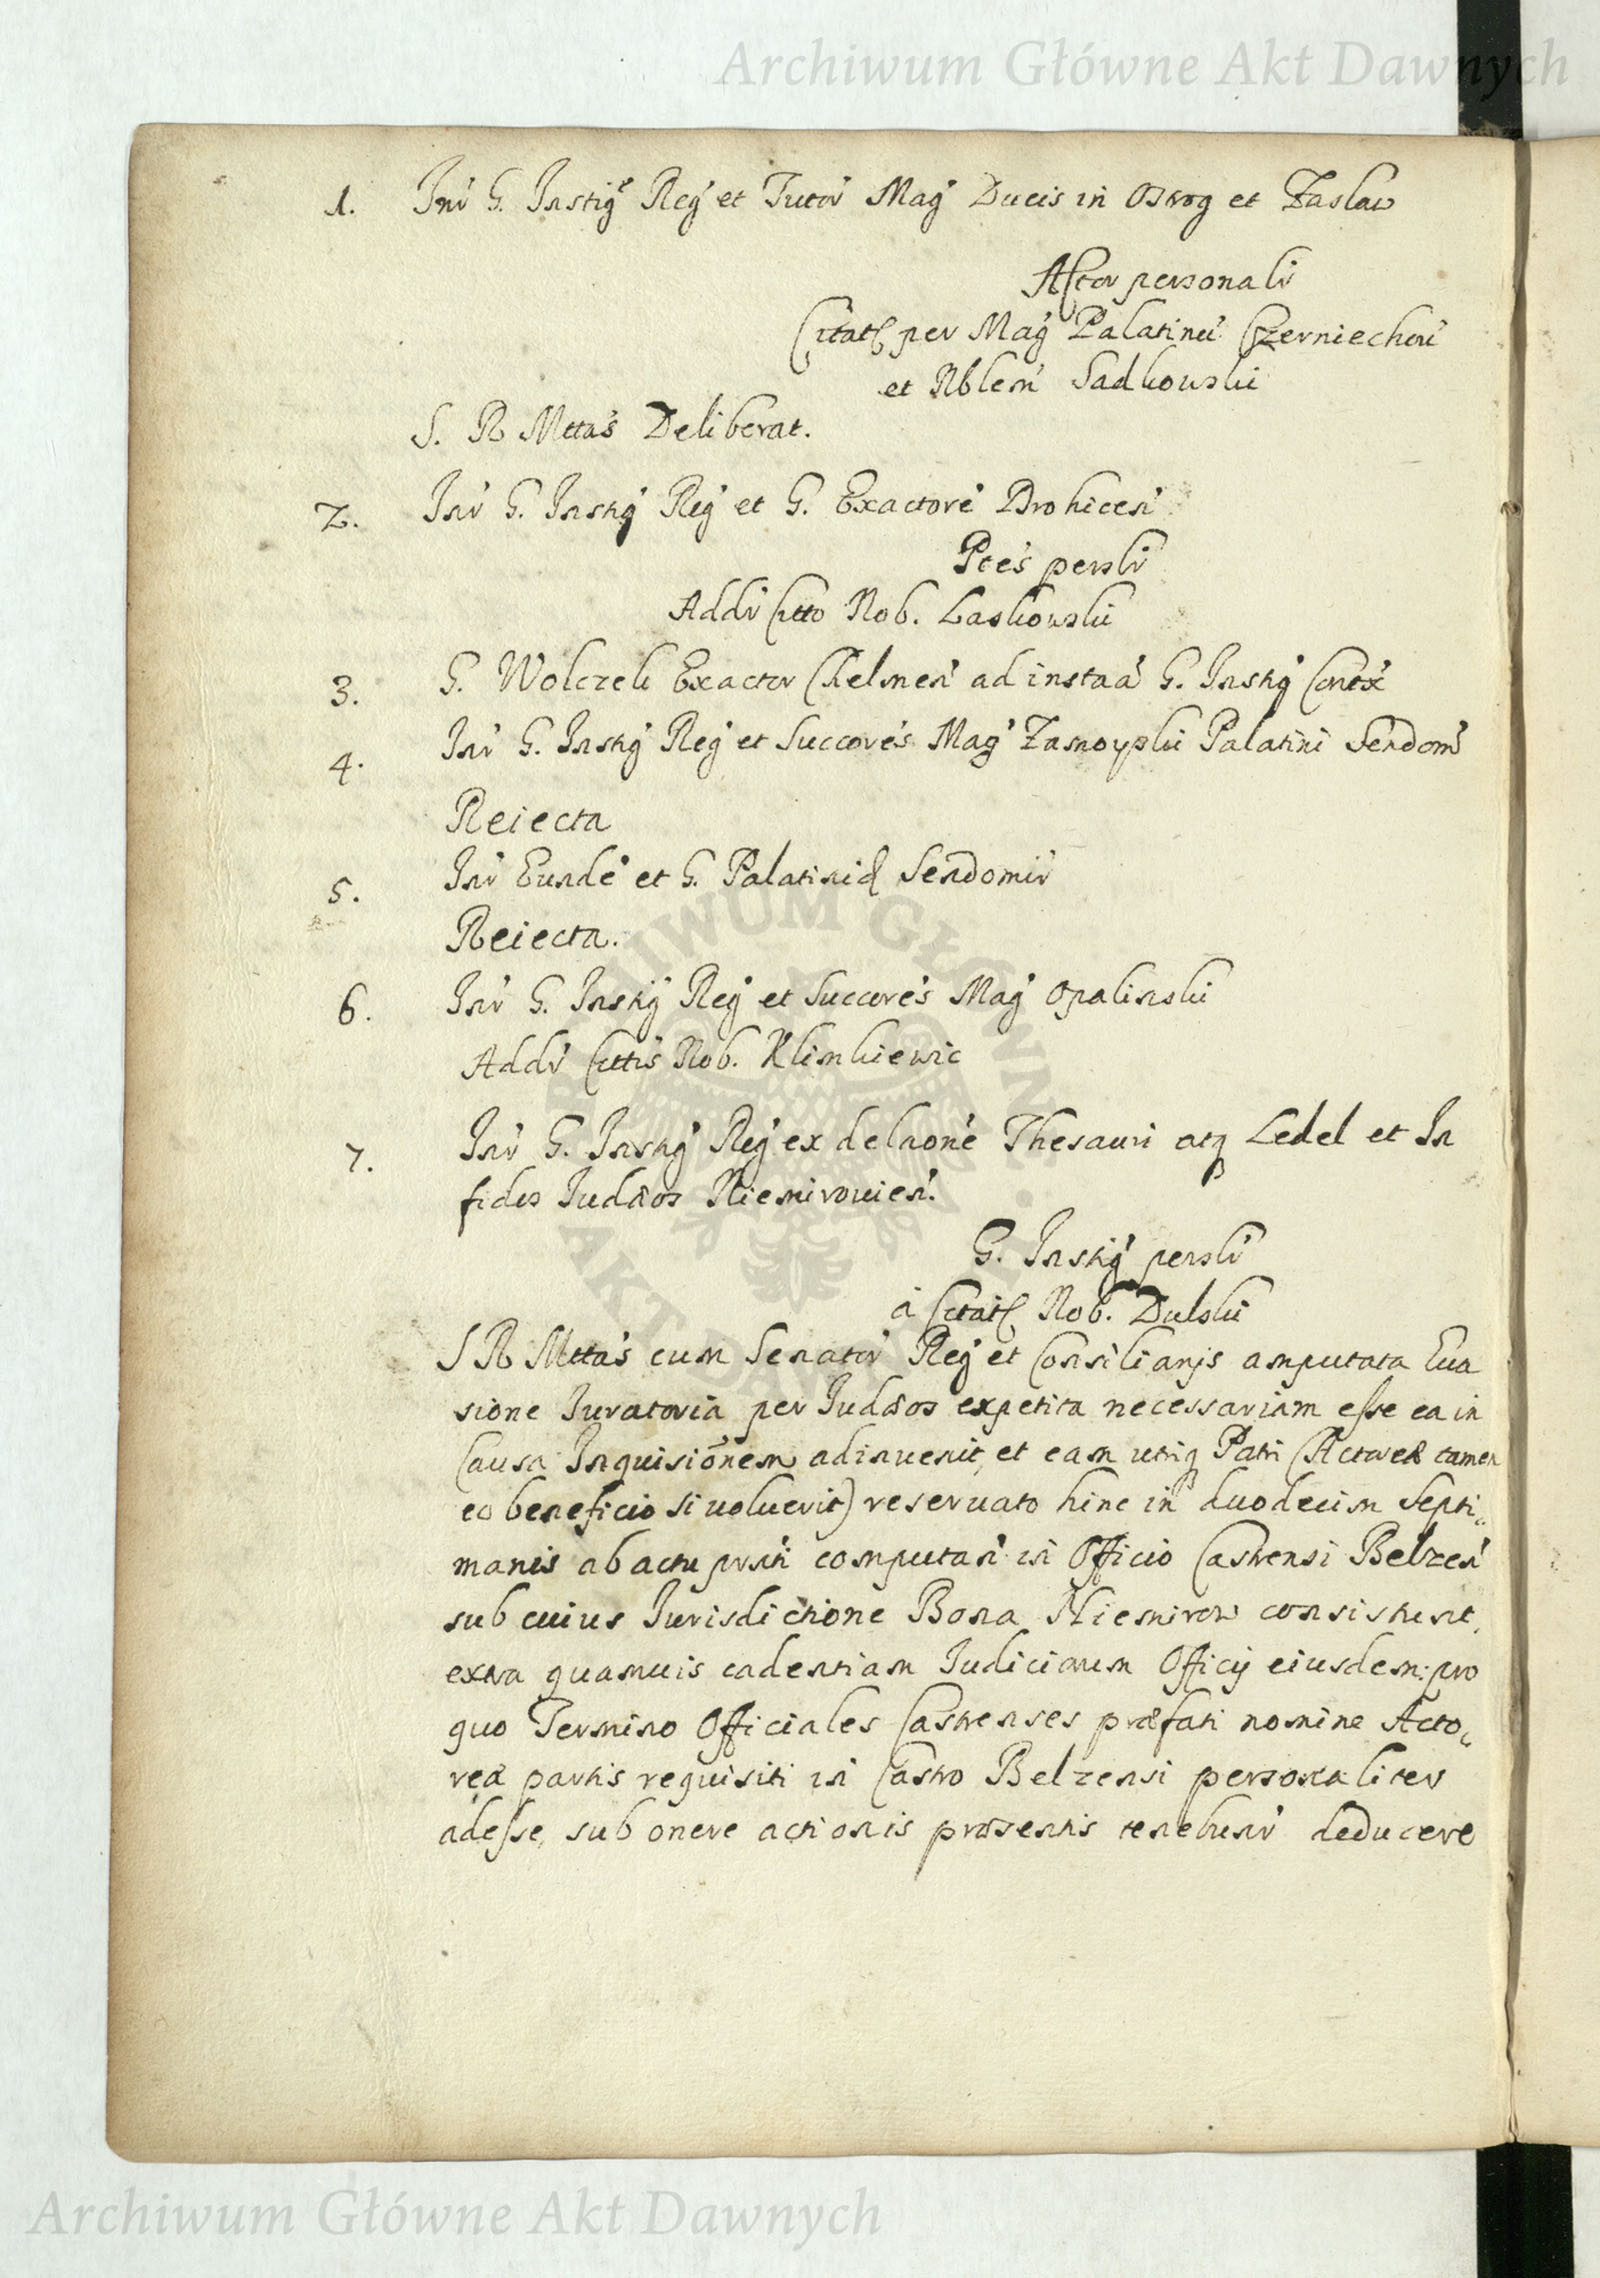 Archiwum Główne Akt Dawnych
1. Inr G. Instig Reg et Tutor Mag Ducis in Ostrog et Zaslaw
Actor personalr
Citats per Mag Palatinu Czerniechou
et Nblem Sadkowski
S. R Mttas Deliberat.
2. Inr G. Instig Reg et G. Exactore Drohicen
Ptes perslr
Addr Citto Nob. Laskowski
3. G. Wolczek Exactor Chelmen ad instaa G. Instig Contx
4. Inr G. Instig Reg et Succores Mag Zamoyski Palatini Sendom
Reiecta
5. Inr Eunde et G. Palatinid Sendomir
Reiecta.
6. Inr G. Instig Reg et Succores Mag Opalinski
Addr Cittis Nob. Klimkiewic
7. Inr G. Instig Reg ex delaone Thesauri atq Ledel et In
fidos Iudæos Niemirouien.
G. Instig perslr
a Citats Nob. Dulski
S R Mttas cum Senator Reg et Consiliarijs amputata Eua
sione Iuratoria per Iudæos expetita necessariam esse ea in
Causa Inquisionem adinuenit, et eam utiq Parti Actoreæ tamen
eo beneficio si uoluerit) reseruato hinc in duodecim Septi„
manis ab actu prnti computan in Officio Castrensi Belzen
sub cuius Iurisdictione Bona Niemirow consistunt,
extra quamuis cadentiam Iudiciorum Officij eiusdem: pro
quo Termino Officiales Castrenses præfati nomine Acto„
reæ partis requisiti in Castro Belzensi personaliter
adesse, sub onere actionis præsentis tenebunr deducere
ARCHIWUM GŁÓWNE AKT DAWNYCH
Archiwum Główne Akt Dawnych